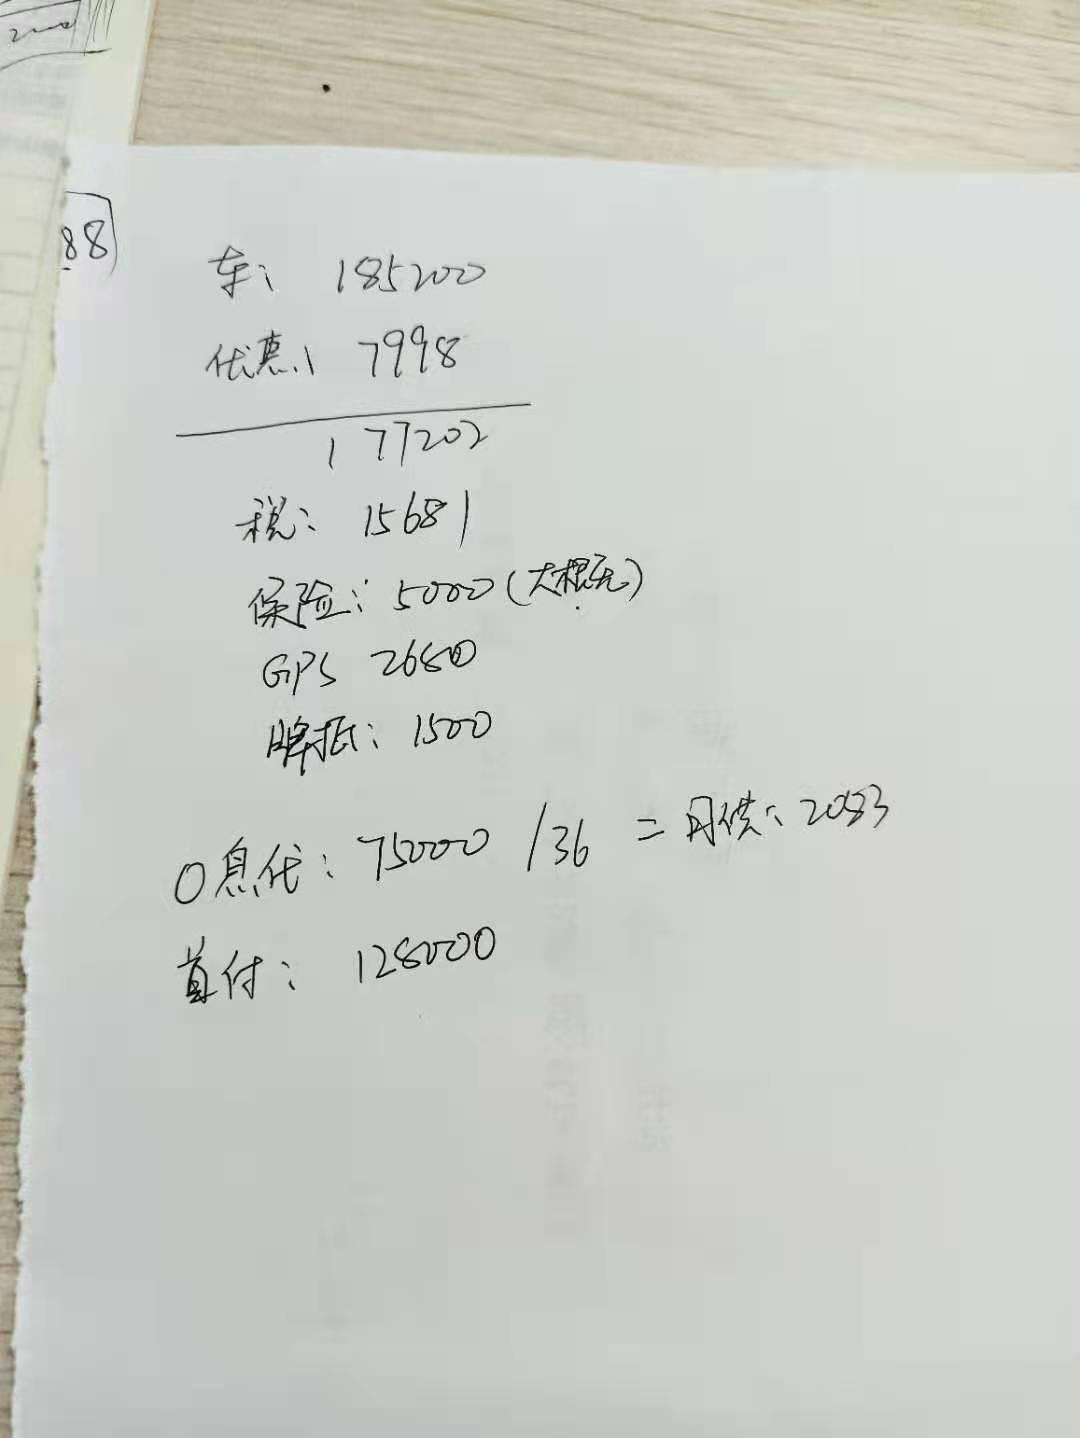 88
车: 185200
优惠: 7998
177202
税: 15681
保险: 5000(大概元)
GPS 2680
牌抵: 1500
0息代: 75000 /36 = 月供: 2083
首付: 128000